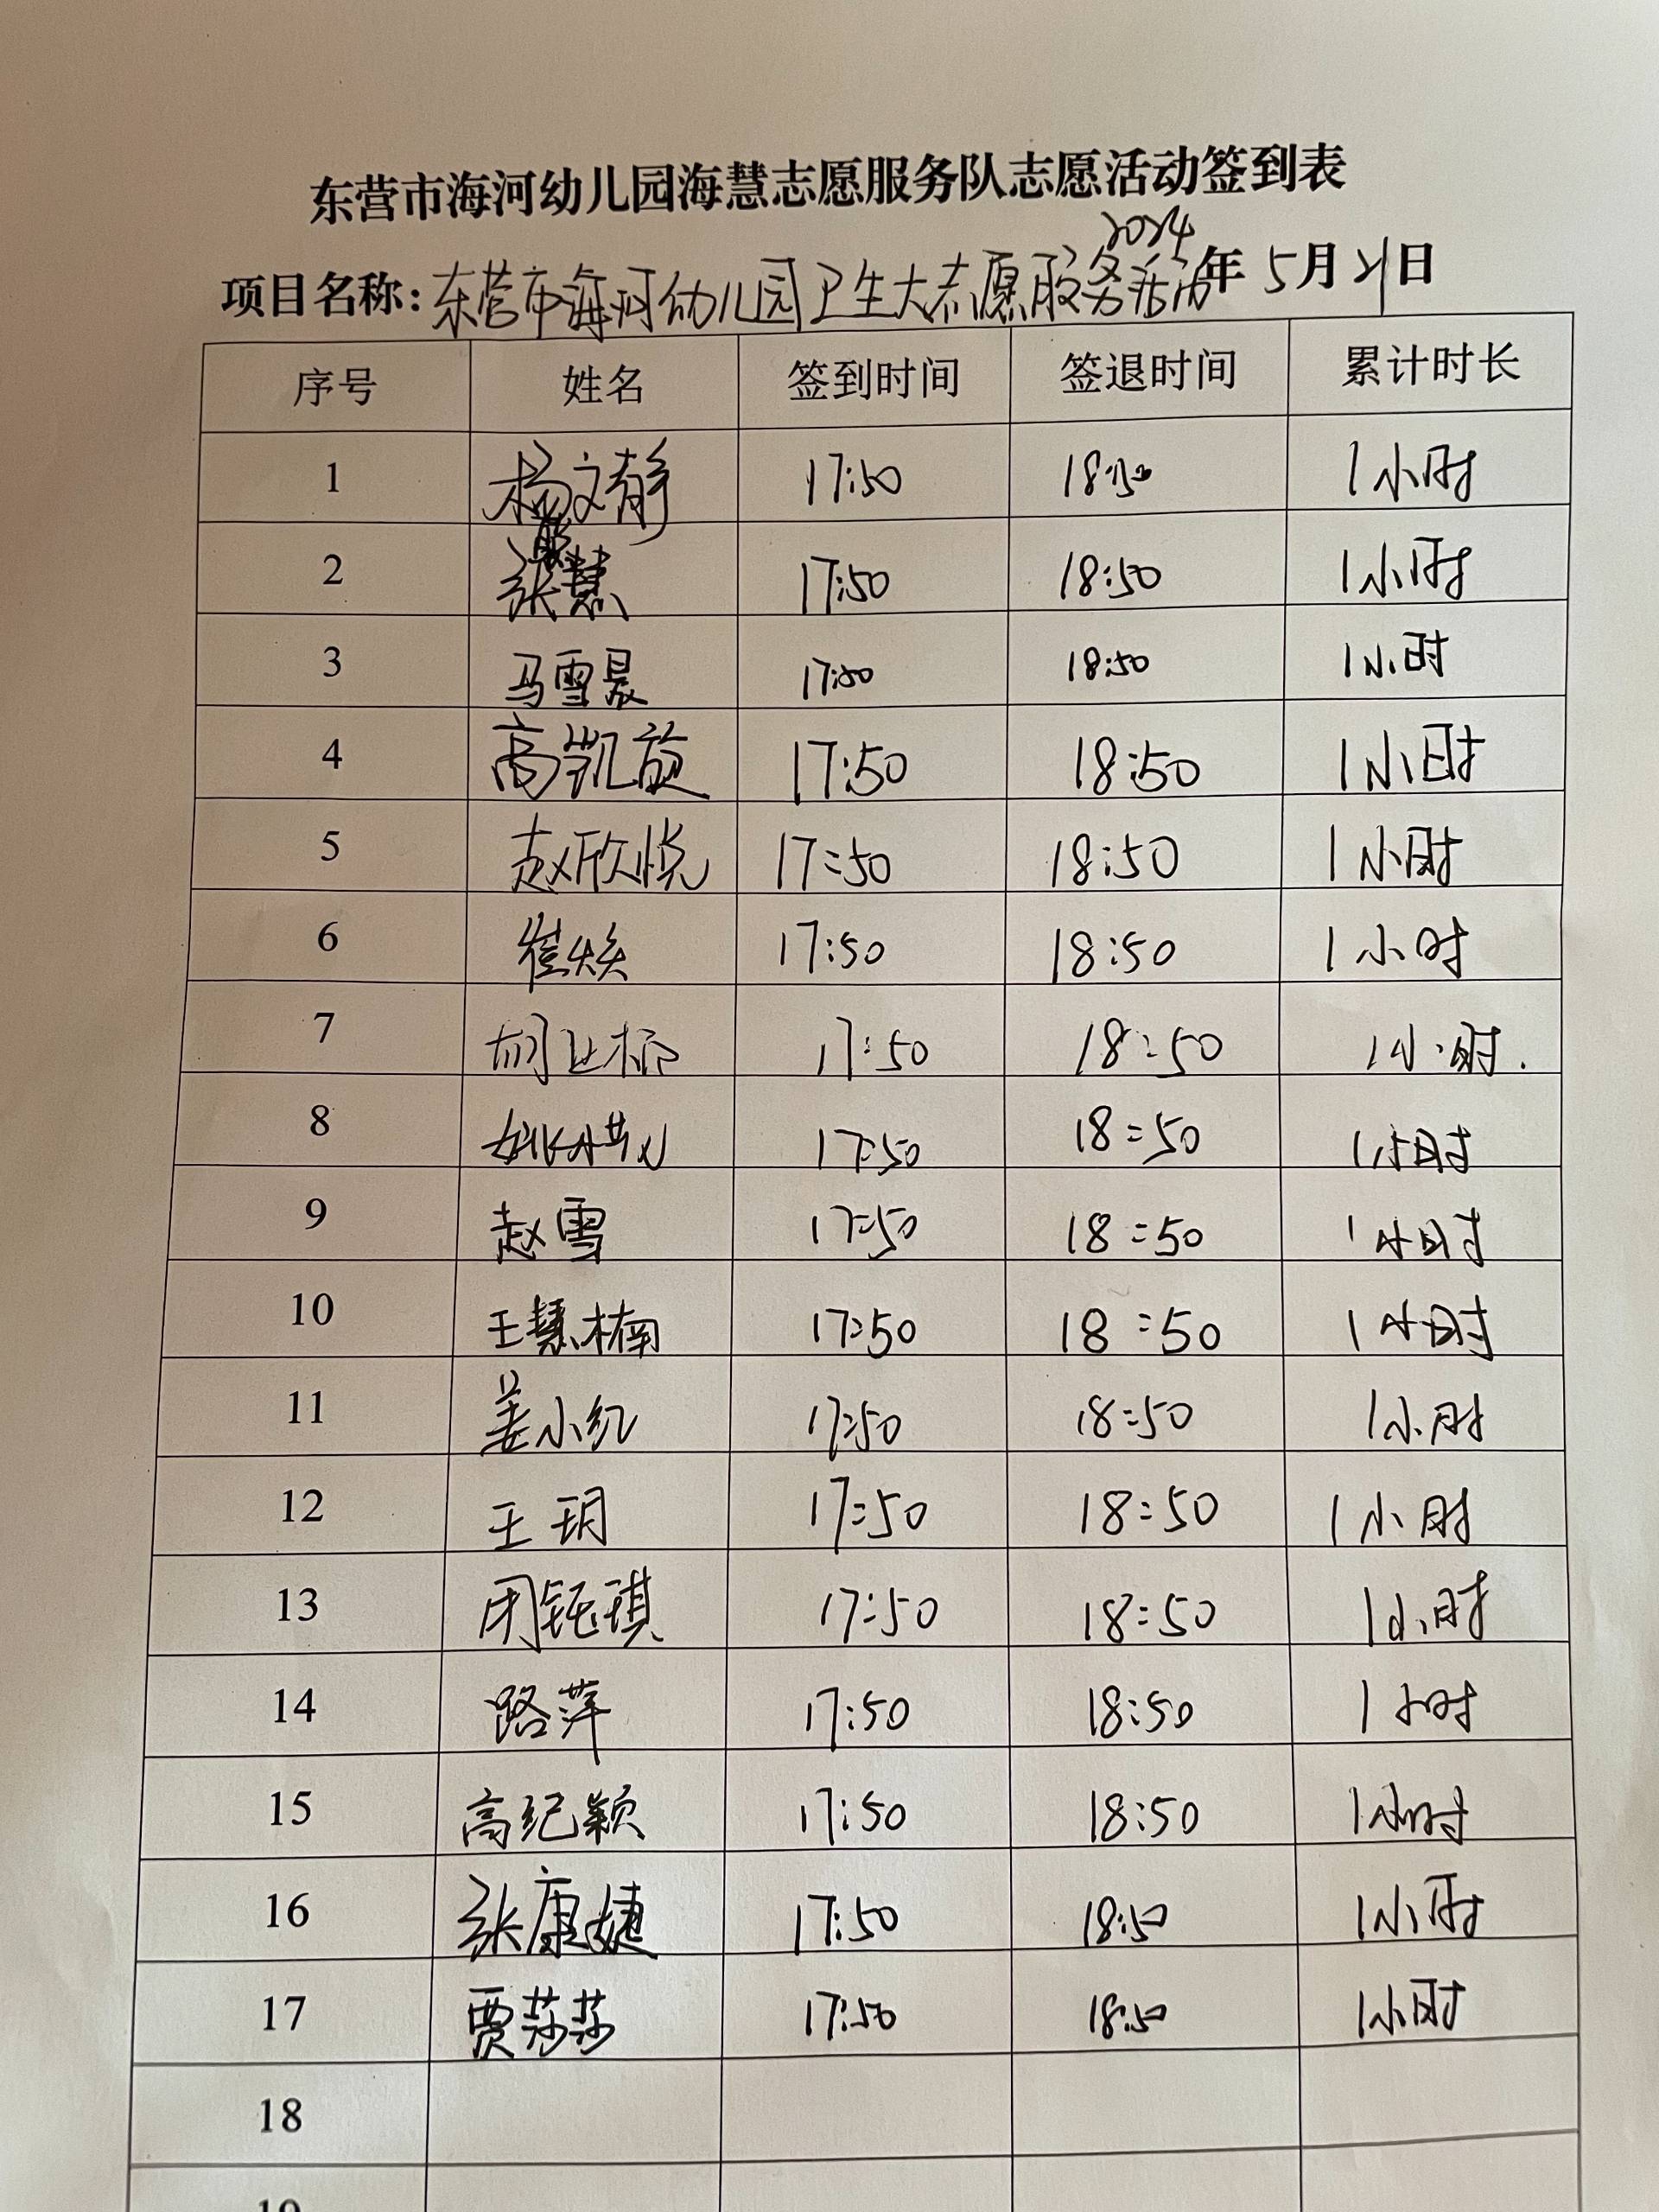 东营市海河幼儿园海慧志愿服务队志愿活动签到表
项目名称:东营市海河幼儿园卫生大志愿服务活动 2024年5月21日
序号 姓名 签到时间 签退时间 累计时长
1 杨文静 17:50 18:50 1小时
2 张慧 17:50 18:50 1小时
3 马雪晨 17:50 18:50 1小时
4 高凯旋 17:50 18:50 1小时
5 赵欣悦 17:50 18:50 1小时
6 崔焕 17:50 18:50 1小时
7 17:50 18:50 1小时.
8 17:50 18:50 1小时
9 赵雪 17:50 18:50 1小时
10 王慧楠 17:50 18:50 1小时
11 姜小红 17:50 18:50 1小时
12 王玥 17:50 18:50 1小时
13 闭钰琪 17:50 18:50 1小时
14 路萍 17:50 18:50 1小时
15 高纪颖 17:50 18:50 1小时
16 张康婕 17:50 18:50 1小时
17 贾莎莎 17:50 18:50 1小时
18
19